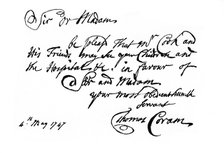 Sir Or Madam
be pleas'd That mr Cook and
His Friends may See your Children and
the Hospital &c. in favour of
Sir and Madam
your most obedient humble
Servant
Thomas Coram
4th May 1747